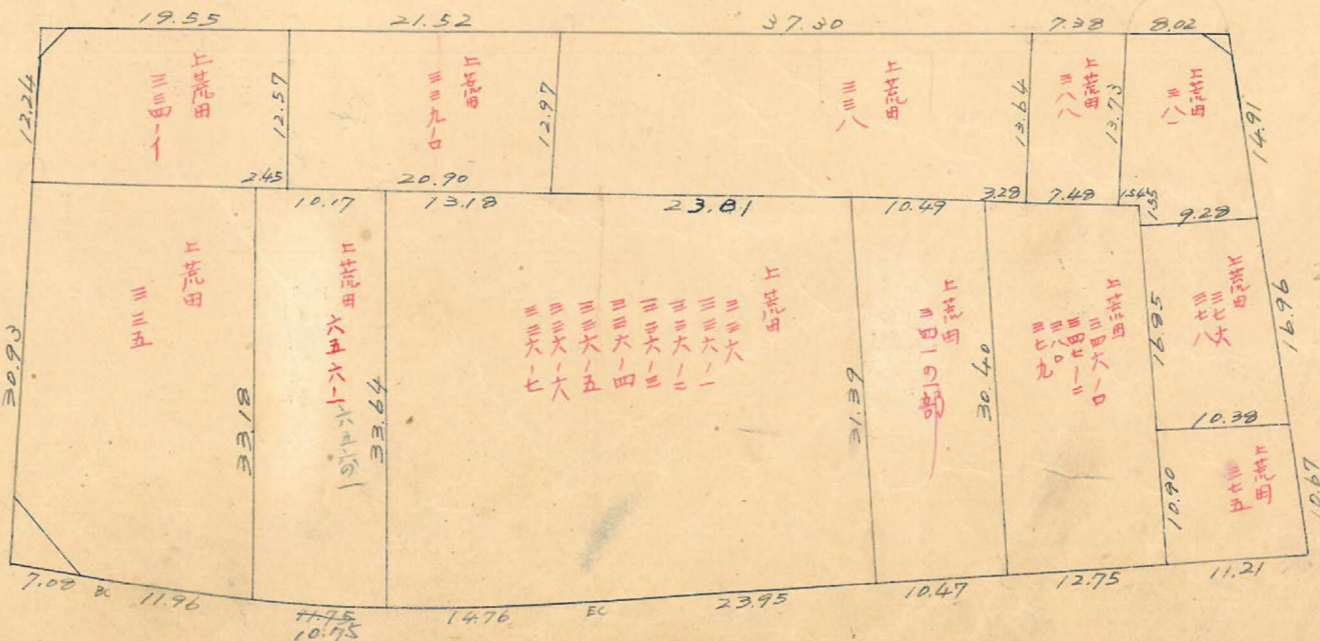 19.55
21.52
37.30
7.38
8.02
12.24
上荒田
三三四ーイ
12.57
上荒田
三三九ーロ
12.97
上荒田
三三八
13.64
上荒田
三八八
13.73
上荒田
三八一
14.91
2.45
20.90
3.28
7.48
1.54
1.55
9.28
10.17
13.18
23.81
10.49
30.93
上荒田
三三五
33.18
上荒田
六五六ー一
六五六の一
33.64
上荒田
三三六
三三六ー一
三三六ー二
三三六ー三
三三六ー四
三三六ー五
三三六ー六
三三六ー七
31.39
上荒田
三四一の一部
30.40
上荒田
三四六ーロ
三四七ー二
三八〇
三七九
16.85
上荒田
三七六
三七八
16.96
10.38
10.90
上荒田
三七五
10.67
7.08
BC
11.96
11.75
10.75
14.76
EC
23.95
10.47
12.75
11.21